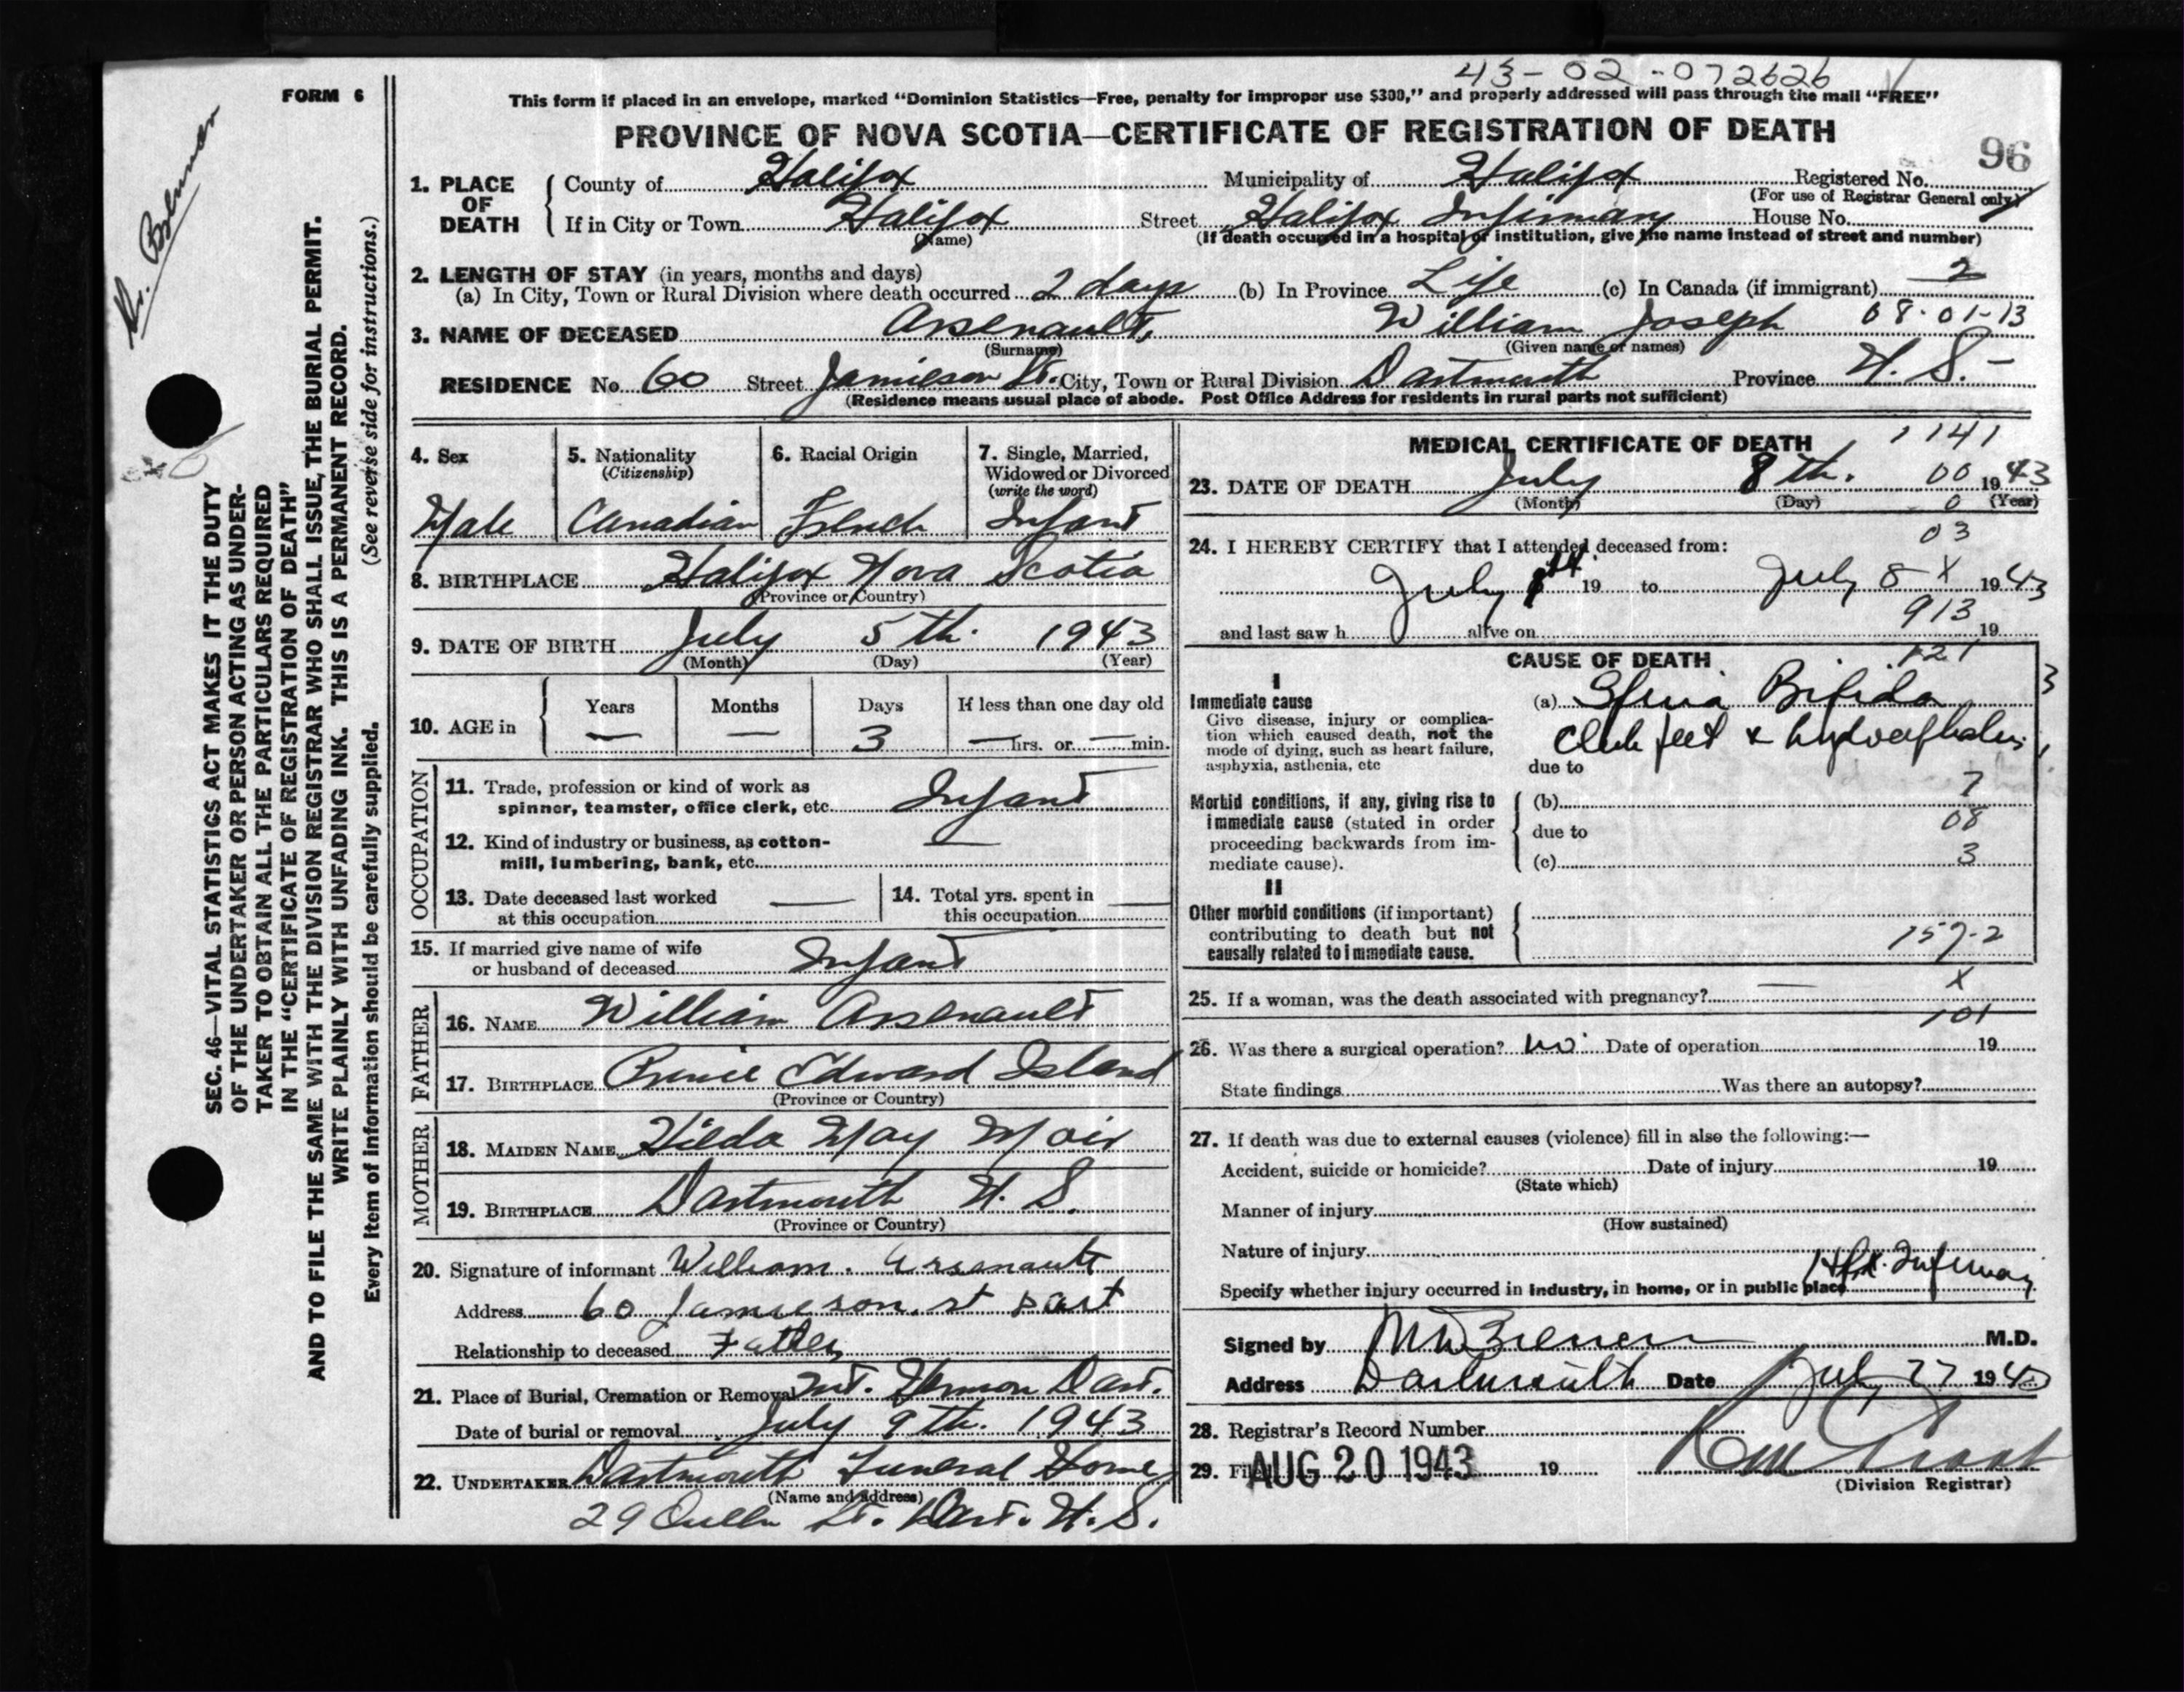 43-02-072626
FORM 6
This form if placed in an envelope, marked "Dominion Statistics—Free, penalty for improper use $300," and properly addressed will pass through the mail "FREE"
PROVINCE OF NOVA SCOTIA—CERTIFICATE OF REGISTRATION OF DEATH
96
1. PLACE OF DEATH
County of Halifax Municipality of Halifax Registered No.
(For use of Registrar General only)
If in City or Town Halifax Street Halifax Infirmary House No.
(Name) (If death occurred in a hospital or institution, give the name instead of street and number)
2. LENGTH OF STAY (in years, months and days)
(a) In City, Town or Rural Division where death occurred 2 days (b) In Province Life (c) In Canada (if immigrant) 2
3. NAME OF DECEASED Arsenault, William Joseph 08-01-13
(Surname) (Given name or names)
RESIDENCE No. 60 Street Jamieson St. City, Town or Rural Division Dartmouth Province N. S. -
(Residence means usual place of abode. Post Office Address for residents in rural parts not sufficient)
4. Sex
Male
5. Nationality
(Citizenship)
Canadian
6. Racial Origin
French
7. Single, Married,
Widowed or Divorced
(write the word)
Infant
8. BIRTHPLACE Halifax Nova Scotia
(Province or Country)
9. DATE OF BIRTH July 5th. 1943
(Month) (Day) (Year)
10. AGE in
Years Months Days If less than one day old
— — 3 — hrs. or — min.
OCCUPATION
11. Trade, profession or kind of work as
spinner, teamster, office clerk, etc. Infant
12. Kind of industry or business, as cotton-
mill, lumbering, bank, etc. —
13. Date deceased last worked
at this occupation —
14. Total yrs. spent in
this occupation —
15. If married give name of wife
or husband of deceased Infant
FATHER
16. NAME William Arsenault
17. BIRTHPLACE Prince Edward Island
(Province or Country)
MOTHER
18. MAIDEN NAME Hilda May Moir
19. BIRTHPLACE Dartmouth N. S.
(Province or Country)
20. Signature of informant William. Arsenault
Address 60 Jamieson. st Dart
Relationship to deceased Father
21. Place of Burial, Cremation or Removal Mt. Hermon Dart.
Date of burial or removal July 9th. 1943
22. UNDERTAKER Dartmouth Funeral Home
(Name and address)
29 Queen St. Dart. N. S.
MEDICAL CERTIFICATE OF DEATH 1141
23. DATE OF DEATH July 8th. 00 1943
(Month) (Day) 0 (Year)
03
24. I HEREBY CERTIFY that I attended deceased from:
July 19 to July 8 X 1943
913
and last saw h alive on 19
CAUSE OF DEATH 121
I
Immediate cause
Give disease, injury or complica-
tion which caused death, not the
mode of dying, such as heart failure,
asphyxia, asthenia, etc
(a) Spina Bifida 3
Club feet & hydrocephalus
due to
7
Morbid conditions, if any, giving rise to
immediate cause (stated in order
proceeding backwards from im-
mediate cause).
(b)
08
due to
3
(c)
II
Other morbid conditions (if important)
contributing to death but not
causally related to immediate cause.
157-2
X
25. If a woman, was the death associated with pregnancy? —
101
26. Was there a surgical operation? no. Date of operation 19
State findings Was there an autopsy?
27. If death was due to external causes (violence) fill in also the following:—
Accident, suicide or homicide? Date of injury 19
(State which)
Manner of injury
(How sustained)
Nature of injury
Hfx. Infirmary
Specify whether injury occurred in industry, in home, or in public place
Signed by M.D.
Address Dartmouth Date July 27 1943
28. Registrar's Record Number
29. Filed AUG 20 1943 19
(Division Registrar)
SEC. 46—VITAL STATISTICS ACT MAKES IT THE DUTY
OF THE UNDERTAKER OR PERSON ACTING AS UNDER-
TAKER TO OBTAIN ALL THE PARTICULARS REQUIRED
IN THE "CERTIFICATE OF REGISTRATION OF DEATH"
AND TO FILE THE SAME WITH THE DIVISION REGISTRAR WHO SHALL ISSUE, THE BURIAL PERMIT.
WRITE PLAINLY WITH UNFADING INK. THIS IS A PERMANENT RECORD.
Every item of information should be carefully supplied. (See reverse side for instructions.)
Dr.